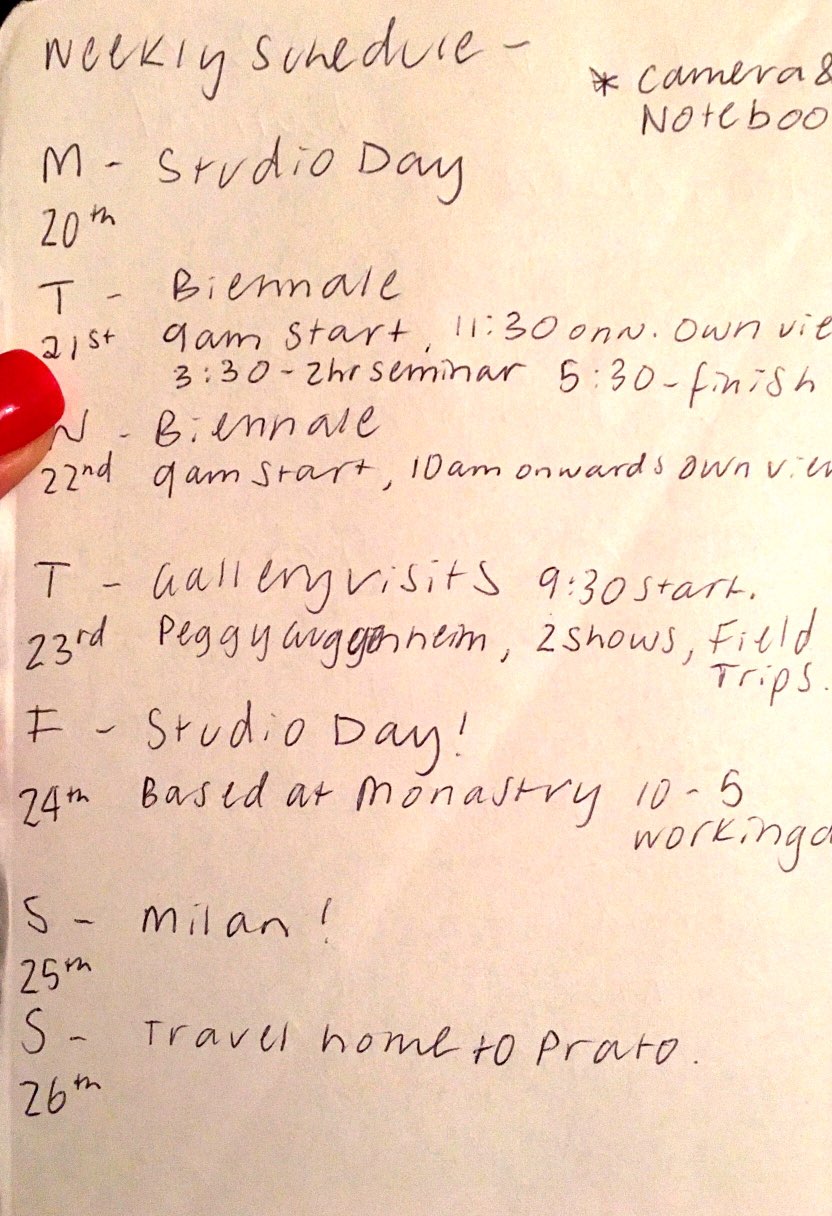 Weekly Schedule -
* Camera &
Noteboo
M - Studio Day
20th
T - Biennale
21st 9am start, 11:30 onw. Own vie
3:30 - 2hr seminar 5:30 - finish
W - Biennale
22nd 9am start, 10am onwards own vie
T - Gallery visits 9:30 start.
23rd Peggy Guggenheim, 2 shows, Field
Trips.
F - Studio Day!
24th Based at Monastry 10 - 5
working
S - Milan!
25th
S - Travel home to Prato.
26th